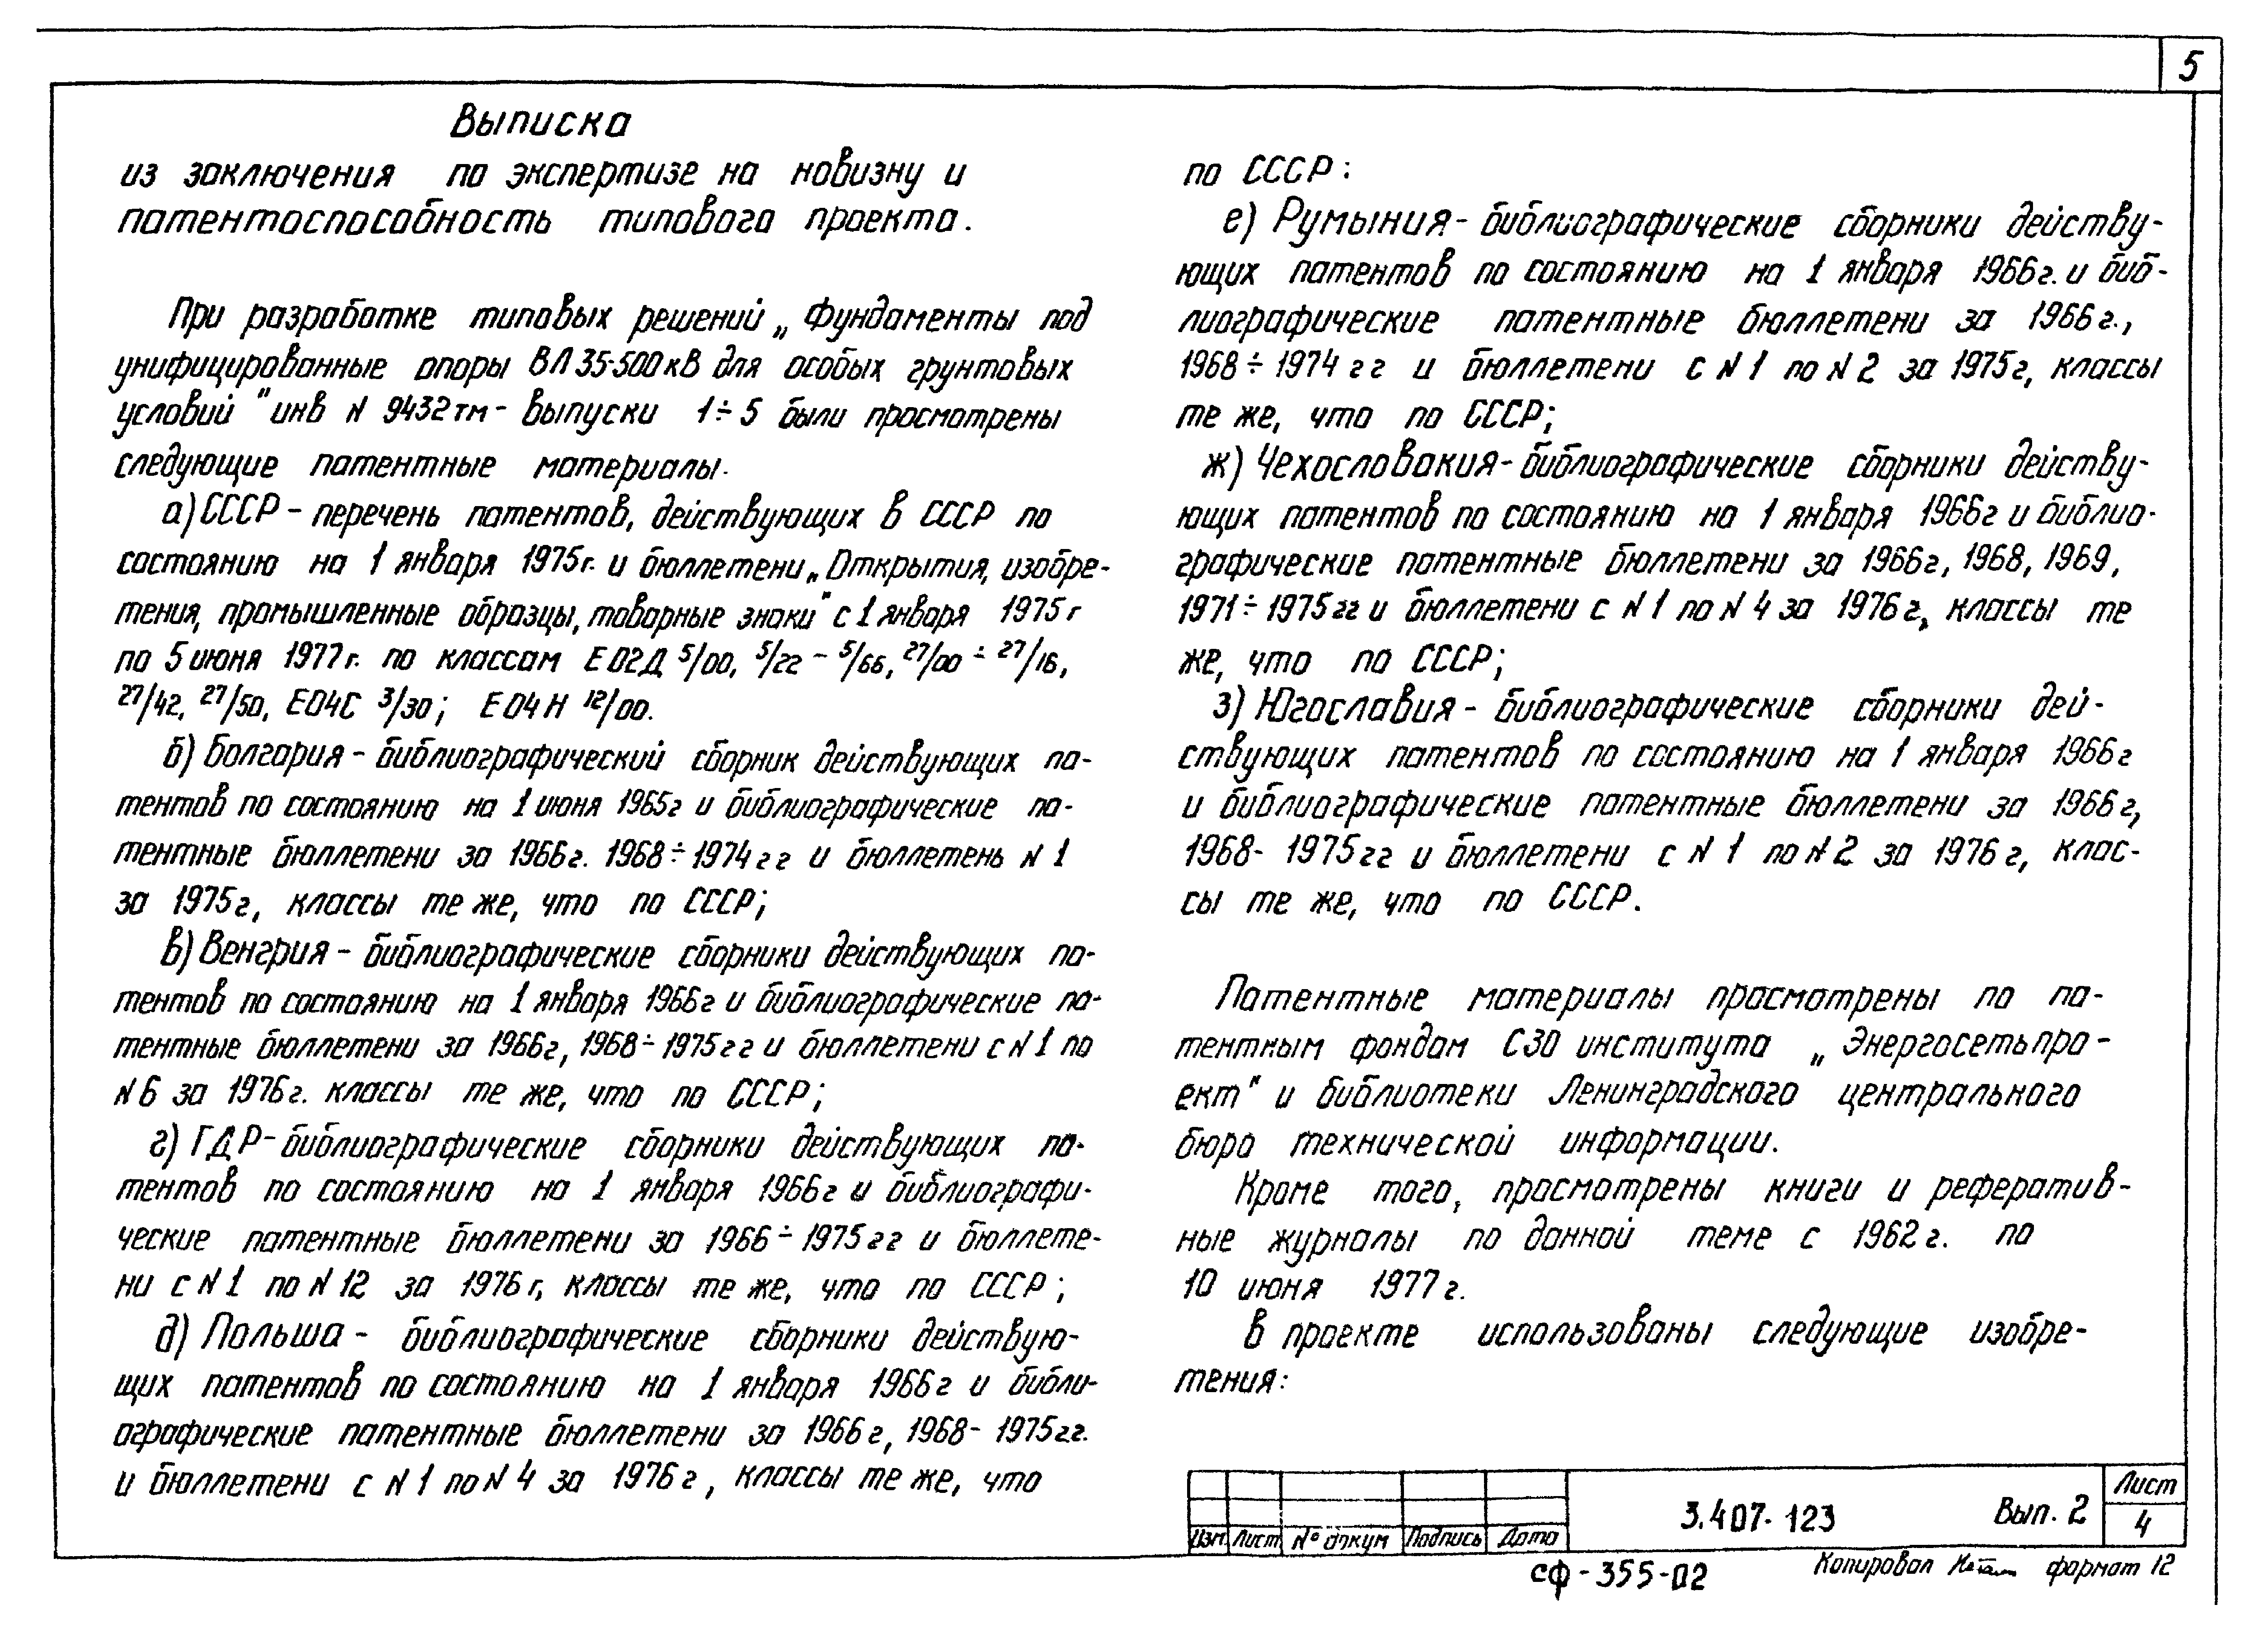 5
Выписка
из заключения по экспертизе на новизну и
патентоспособность типового проекта.
При разработке типовых решений „Фундаменты под
унифицированные опоры ВЛ 35-500кВ для особых грунтовых
условий" инв N 9432тм - выпуски 1÷5 были просмотрены
следующие патентные материалы.
а) СССР - перечень патентов, действующих в СССР по
состоянию на 1 января 1975г. и бюллетени „Открытия, изобре-
тения, промышленные образцы, товарные знаки" с 1 января 1975г
по 5 июня 1977г. по классам Е02Д 5/00, 5/22 - 5/66, 27/00 ÷ 27/16,
27/42, 27/50, Е04С 3/30; Е04Н 12/00.
б) Болгария - библиографический сборник действующих па-
тентов по состоянию на 1 июня 1965г и библиографические па-
тентные бюллетени за 1966г. 1968÷1974гг и бюллетень N 1
за 1975г, классы те же, что по СССР;
в) Венгрия - библиографические сборники действующих па-
тентов по состоянию на 1 января 1966г и библиографические па-
тентные бюллетени за 1966г, 1968÷1975гг и бюллетени с N 1 по
N 6 за 1976г. классы те же, что по СССР;
г) ГДР - библиографические сборники действующих па-
тентов по состоянию на 1 января 1966г и библиографи-
ческие патентные бюллетени за 1966÷1975гг и бюллете-
ни с N 1 по N 12 за 1976г, классы те же, что по СССР;
д) Польша - библиографические сборники действую-
щих патентов по состоянию на 1 января 1966г и библи-
ографические патентные бюллетени за 1966г, 1968-1975гг.
и бюллетени с N 1 по N 4 за 1976г, классы те же, что
по СССР:
е) Румыния - библиографические сборники действу-
ющих патентов по состоянию на 1 января 1966г. и биб-
лиографические патентные бюллетени за 1966г.,
1968÷1974гг и бюллетени с N 1 по N 2 за 1975г, классы
те же, что по СССР;
ж) Чехословакия - библиографические сборники действу-
ющих патентов по состоянию на 1 января 1966г и библио-
графические патентные бюллетени за 1966г, 1968, 1969,
1971÷1975гг и бюллетени с N 1 по N 4 за 1976г, классы те
же, что по СССР;
з) Югославия - библиографические сборники дей-
ствующих патентов по состоянию на 1 января 1966г
и библиографические патентные бюллетени за 1966г,
1968-1975гг и бюллетени с N 1 по N 2 за 1976г, клас-
сы те же, что по СССР.
Патентные материалы просмотрены по па-
тентным фондам СЗО института „Энергосетьпро-
ект" и библиотеки Ленинградского центрального
бюро технической информации.
Кроме того, просмотрены книги и рефератив-
ные журналы по данной теме с 1962г. по
10 июня 1977г.
В проекте использованы следующие изобре-
тения:
Изм Лист N° докум Подпись Дата
3.407-123 Вып. 2
Лист
4
СФ-355-02
Копировал формат 12